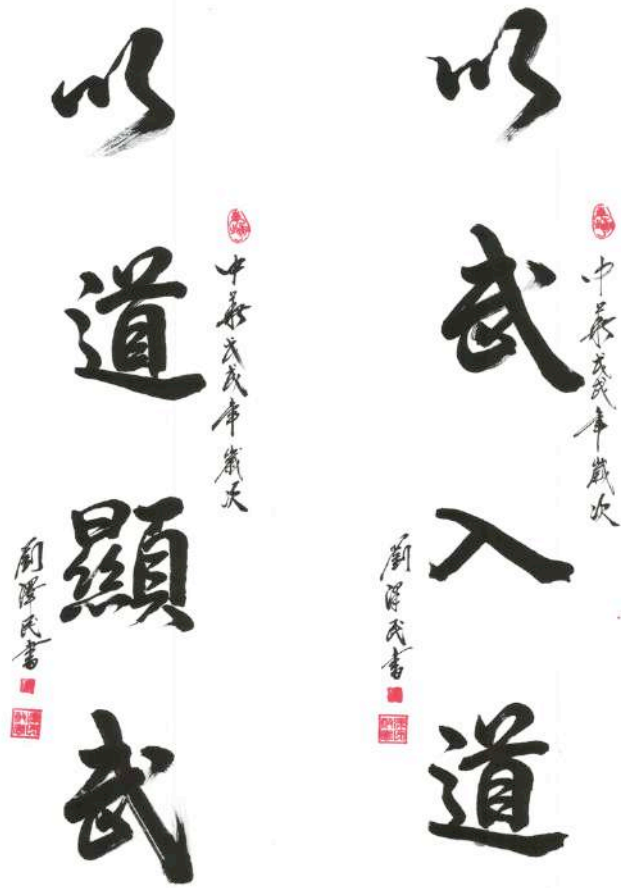 以武入道
中華戊戌年歲次
劉澤民書
以道顯武
中華戊戌年歲次
劉澤民書